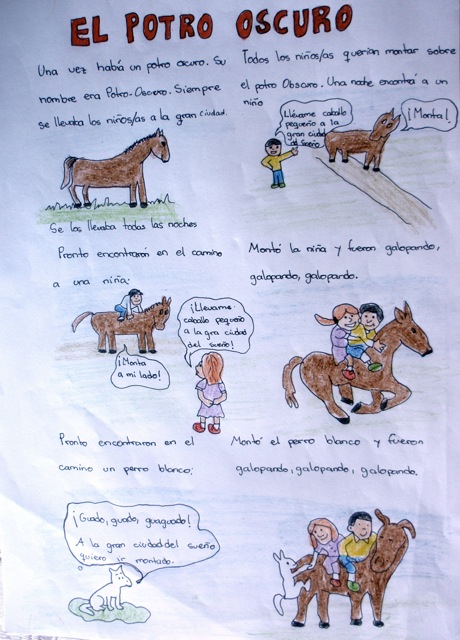 EL POTRO OSCURO
Una vez había un potro oscuro. Su
nombre era Potro-Oscuro. Siempre
se llevaba los niños/as a la gran ciudad.
Se los llevaba todas las noches
Todos los niños/as querían montar sobre
el potro Obscuro. Una noche encontró a un
niño
Llévame caballo
pequeño a la
gran ciudad
del sueño
¡Monta!
Pronto encontraron en el camino
a una niña:
¡Monta
a mi lado!
¡Llévame
caballo pequeño
a la gra ciudad
del sueño!
Montó la niña y fueron galopando,
galopando, galopando.
Pronto encontraron en el
camino un perro blanco:
¡Guado, guado, guaguado!
A la gran ciudad del sueño
quiero ir montado.
Montó el perro blanco y fueron
galopando, galopando, galopando.